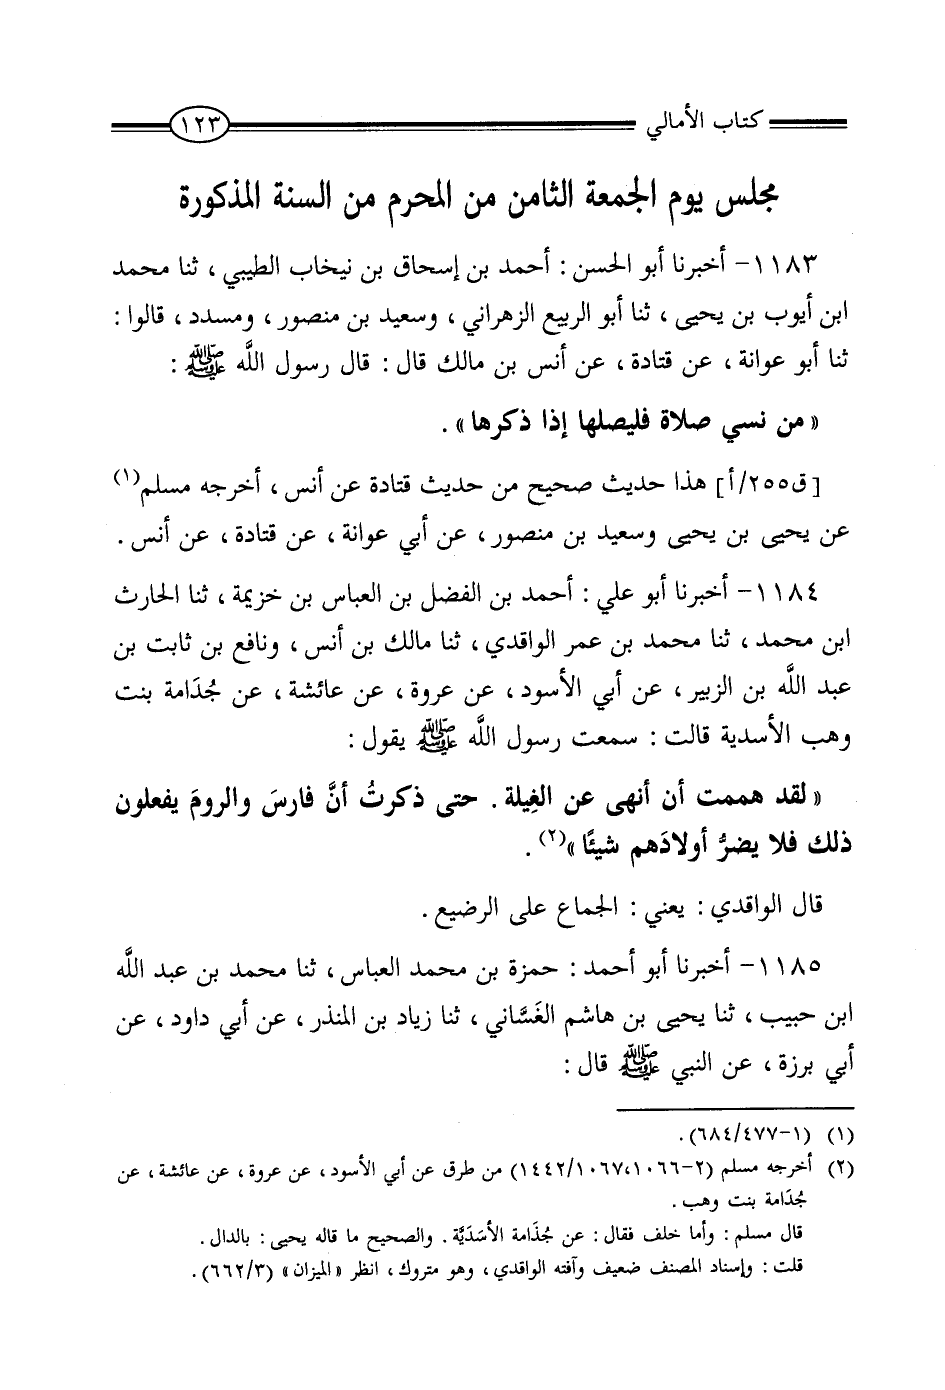 كتاب الأمالي ١٢٣
مجلس يوم الجمعة الثامن من المحرم من السنة المذكورة
١١٨٣- أخبرنا أبو الحسن : أحمد بن إسحاق بن نيخاب الطيبي ، ثنا محمد
ابن أيوب بن يحيى ، ثنا أبو الربيع الزهراني ، وسعيد بن منصور ، ومسدد ، قالوا :
ثنا أبو عوانة ، عن قتادة ، عن أنس بن مالك قال : قال رسول الله ﷺ :
« من نسي صلاة فليصلها إذا ذكرها » .
[ق٢٥٥/أ] هذا حديث صحيح من حديث قتادة عن أنس ، أخرجه مسلم(١)
عن يحيى بن يحيى وسعيد بن منصور ، عن أبي عوانة ، عن قتادة ، عن أنس .
١١٨٤- أخبرنا أبو علي : أحمد بن الفضل بن العباس بن خزيمة ، ثنا الحارث
ابن محمد ، ثنا محمد بن عمر الواقدي ، ثنا مالك بن أنس ، ونافع بن ثابت بن
عبد اللَّه بن الزبير ، عن أبي الأسود ، عن عروة ، عن عائشة ، عن جُدَامة بنت
وهب الأسدية قالت : سمعت رسول اللَّه ﷺ يقول :
« لقد هممت أن أنهى عن الغِيلة . حتى ذكرتُ أنَّ فارسَ والرومَ يفعلون
ذلك فلا يضرُّ أولادَهم شيئًا »(٢) .
قال الواقدي : يعني : الجماع على الرضيع .
١١٨٥- أخبرنا أبو أحمد : حمزة بن محمد العباس ، ثنا محمد بن عبد اللَّه
ابن حبيب ، ثنا يحيى بن هاشم الغَسَّاني ، ثنا زياد بن المنذر ، عن أبي داود ، عن
أبي برزة ، عن النبي ﷺ قال :
(١) (١-٦٨٤/٤٧٧) .
(٢) أخرجه مسلم (٢-١٠٦٦،١٤٤٢/١٠٦٧) من طرق عن أبي الأسود ، عن عروة ، عن عائشة ، عن
جُدَامة بنت وهب .
قال مسلم : وأما خلف فقال : عن جُذَامة الأسَدَيَّة . والصحيح ما قاله يحيى : بالدال .
قلت : وإسناد المصنف ضعيف وآفته الواقدي ، وهو متروك ، انظر « الميزان » (٦٦٢/٣) .